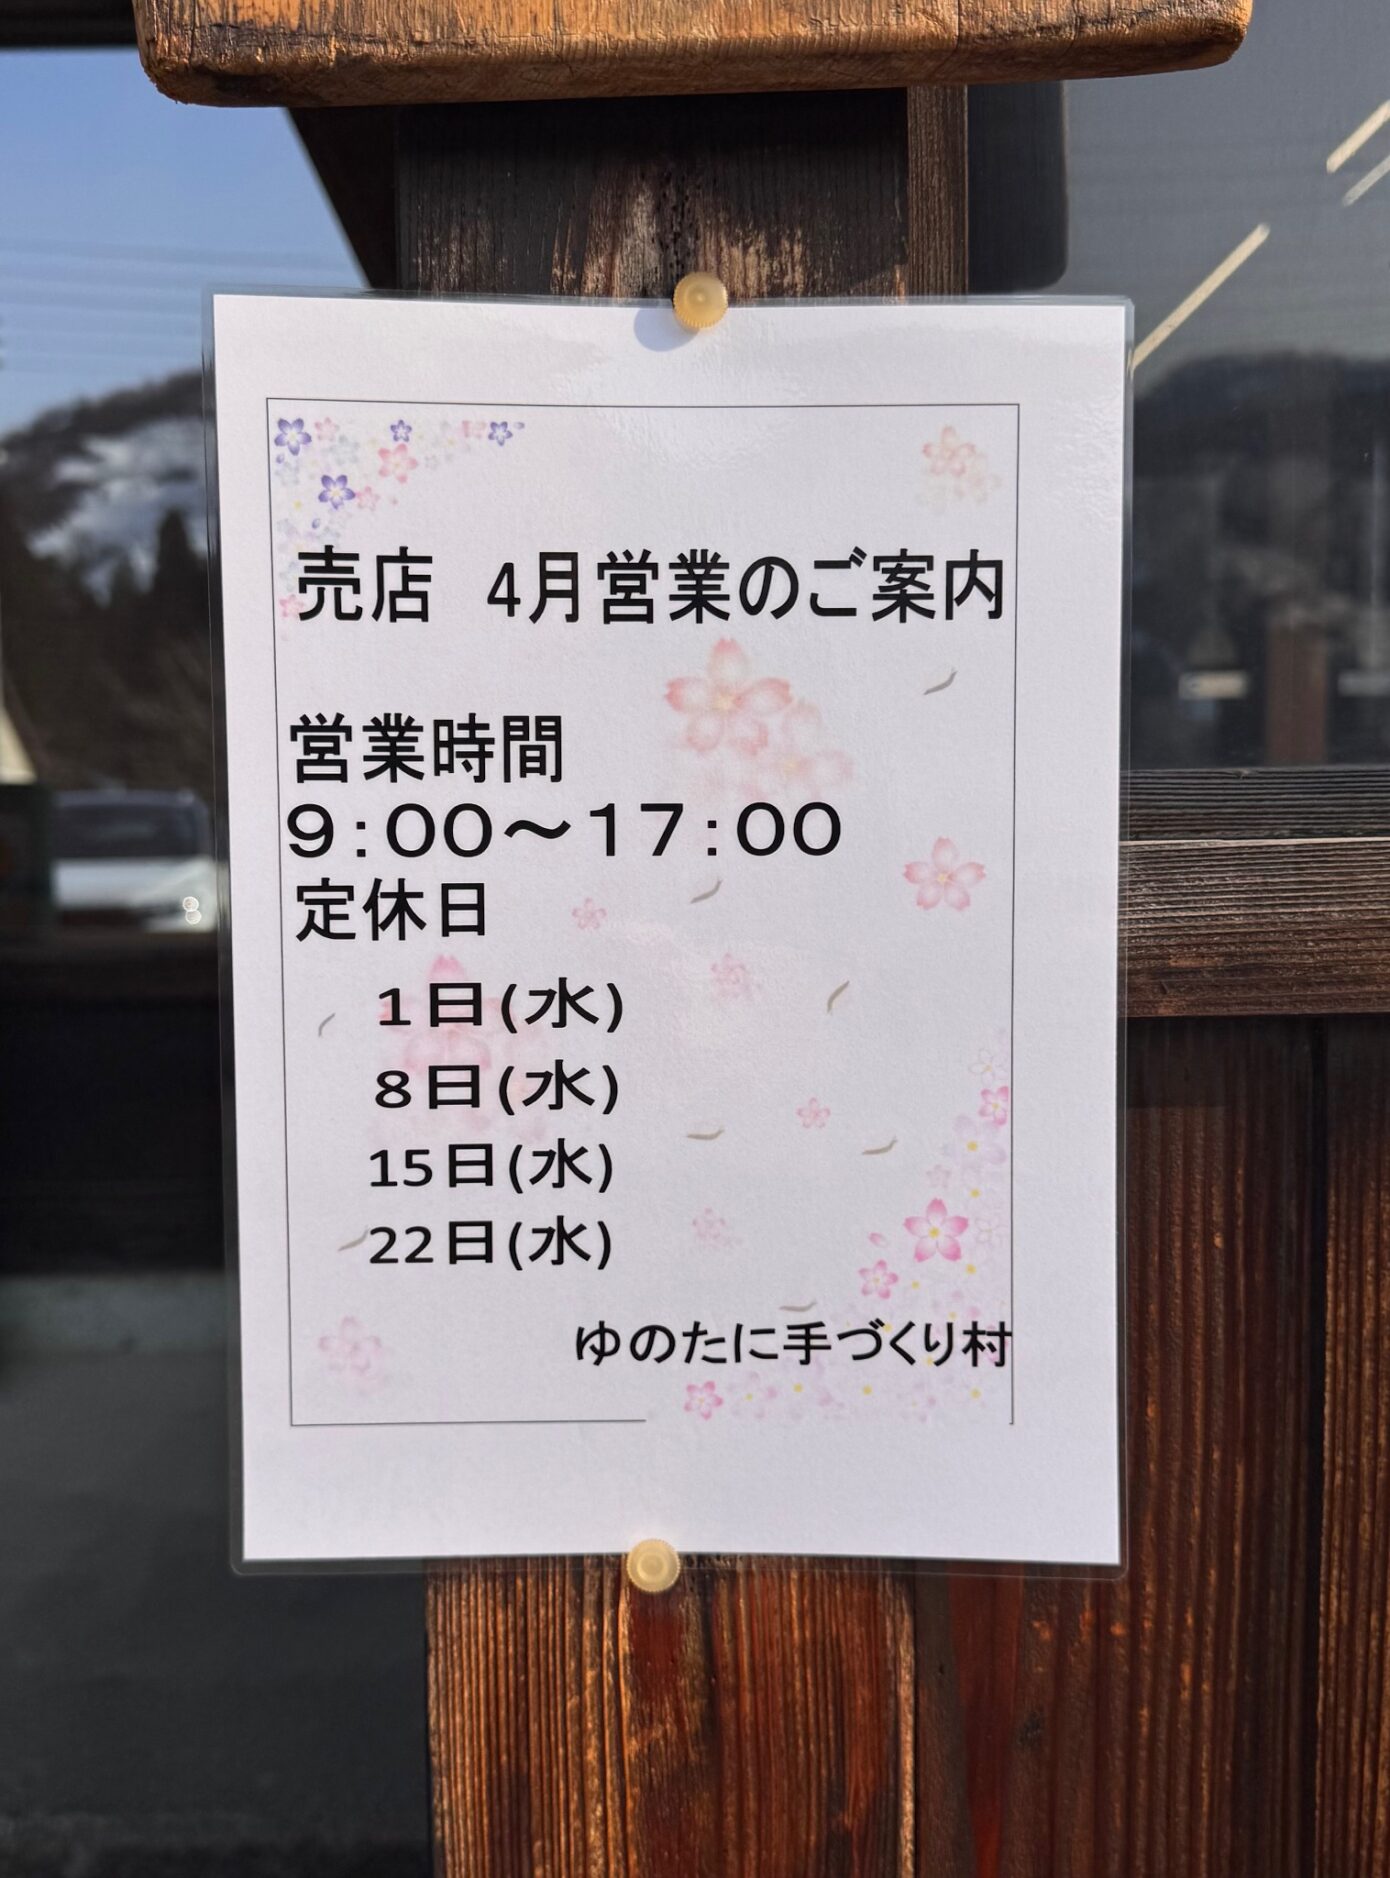 売店　4月営業のご案内
営業時間
９：００～１７：００
定休日
1日(水)
8日(水)
15日(水)
22日(水)
ゆのたに手づくり村